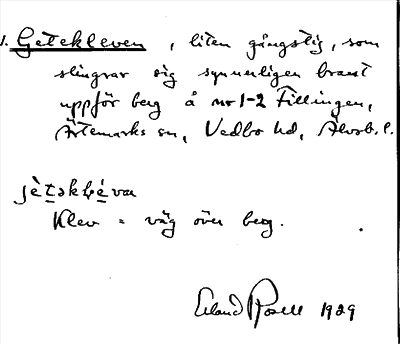 1. Getekleven, liten gångstig, som
slingrar sig synnerligen brant
uppför berg å nr 1-2 Fillingen,
Ärtemarks sn, Vedbo hd, Älvsb. l.
Klev = väg över berg.
Erland Rosell 1929